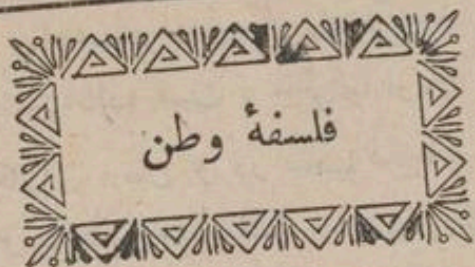 فلسفهٔ وطن